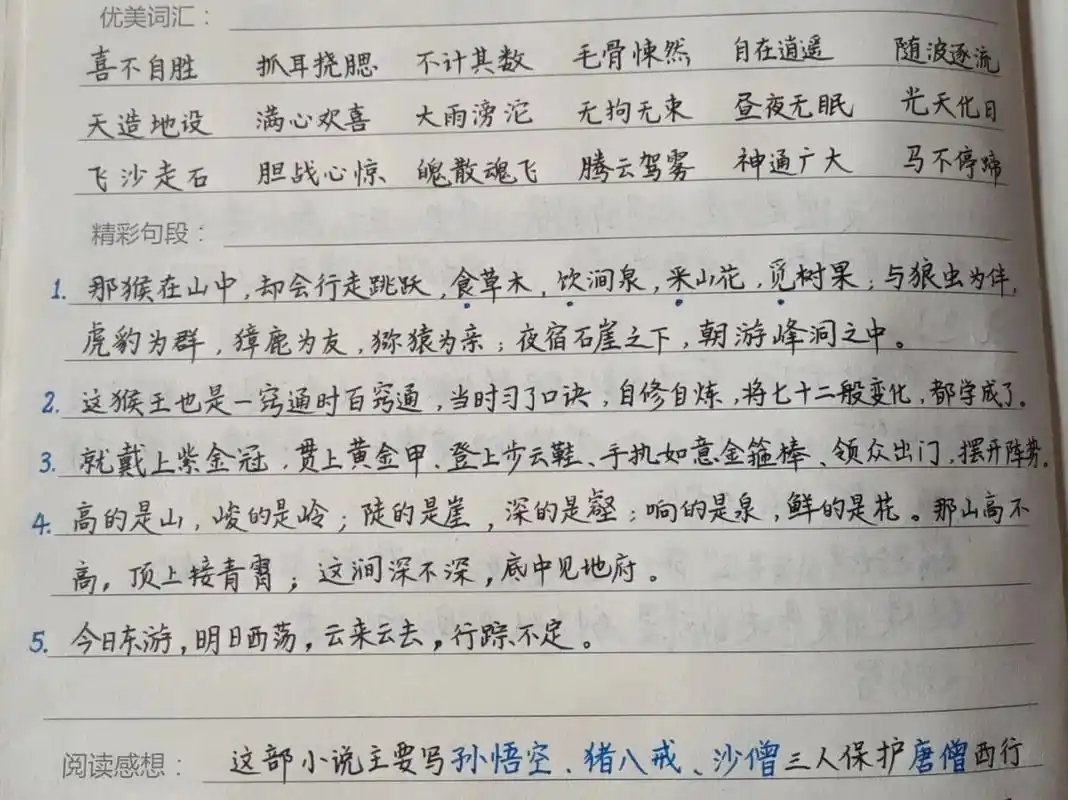 优美词汇：
喜不自胜 抓耳挠腮 不计其数 毛骨悚然 自在逍遥 随波逐流
天造地设 满心欢喜 大雨滂沱 无拘无束 昼夜无眠 光天化日
飞沙走石 胆战心惊 魄散魂飞 腾云驾雾 神通广大 马不停蹄
精彩句段：
1. 那猴在山中,却会行走跳跃,食草木,饮涧泉,采山花,觅树果;与狼虫为伴,
虎豹为群,獐鹿为友,猕猿为亲;夜宿石崖之下,朝游峰洞之中。
2. 这猴王也是一窍通时百窍通,当时习了口诀,自修自炼,将七十二般变化,都学成了。
3. 就戴上紫金冠,贯上黄金甲、登上步云鞋、手执如意金箍棒、领众出门,摆开阵势。
4. 高的是山,峻的是岭;陡的是崖,深的是壑;响的是泉,鲜的是花。那山高不
高,顶上接青霄;这涧深不深,底中见地府。
5. 今日东游,明日西荡,云来云去,行踪不定。
阅读感想： 这部小说主要写孙悟空、猪八戒、沙僧三人保护唐僧西行